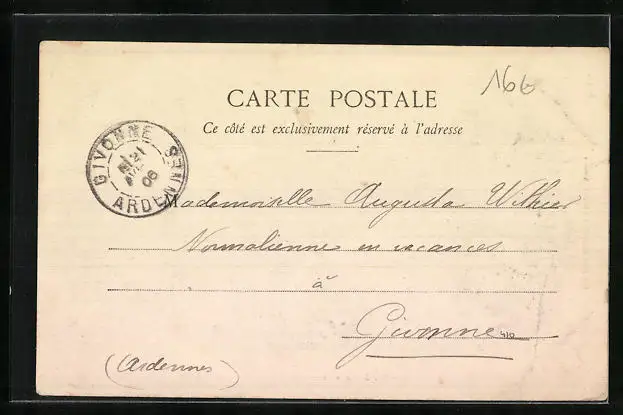 166
CARTE POSTALE
Ce côté est exclusivement réservé à l'adresse
GIVONNE
21
06
ARDENNES
Mademoiselle Augusta Withier
Normalienne en vacances
à
Givonne
410
(Ardennes)